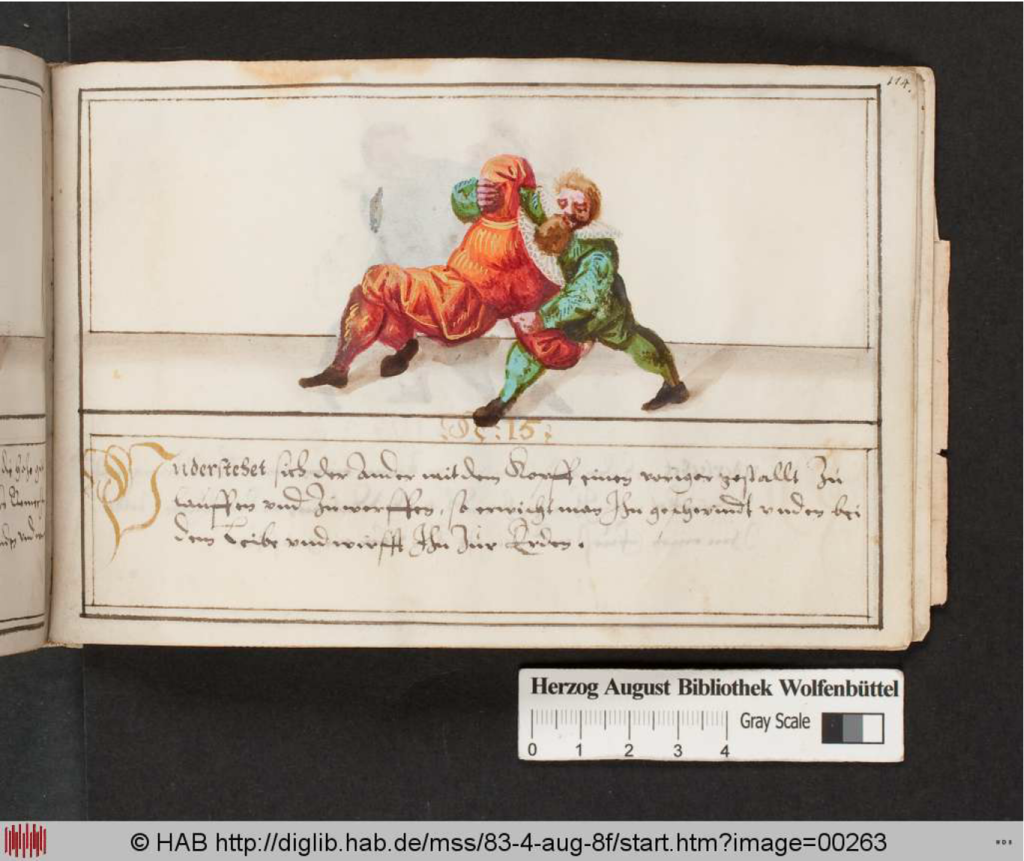 114.
N: 15:
Understehet sich der Ander mit dem Kopff einen voriger gestallt Zu
lauffen vnd Zu werffen, so erwischt man Ihn geschwindt vnden bei
dem Leibe vnd wirfft Ihn Zur Erden.
Herzog August Bibliothek Wolfenbüttel
Gray Scale
0 1 2 3 4
© HAB http://diglib.hab.de/mss/83-4-aug-8f/start.htm?image=00263